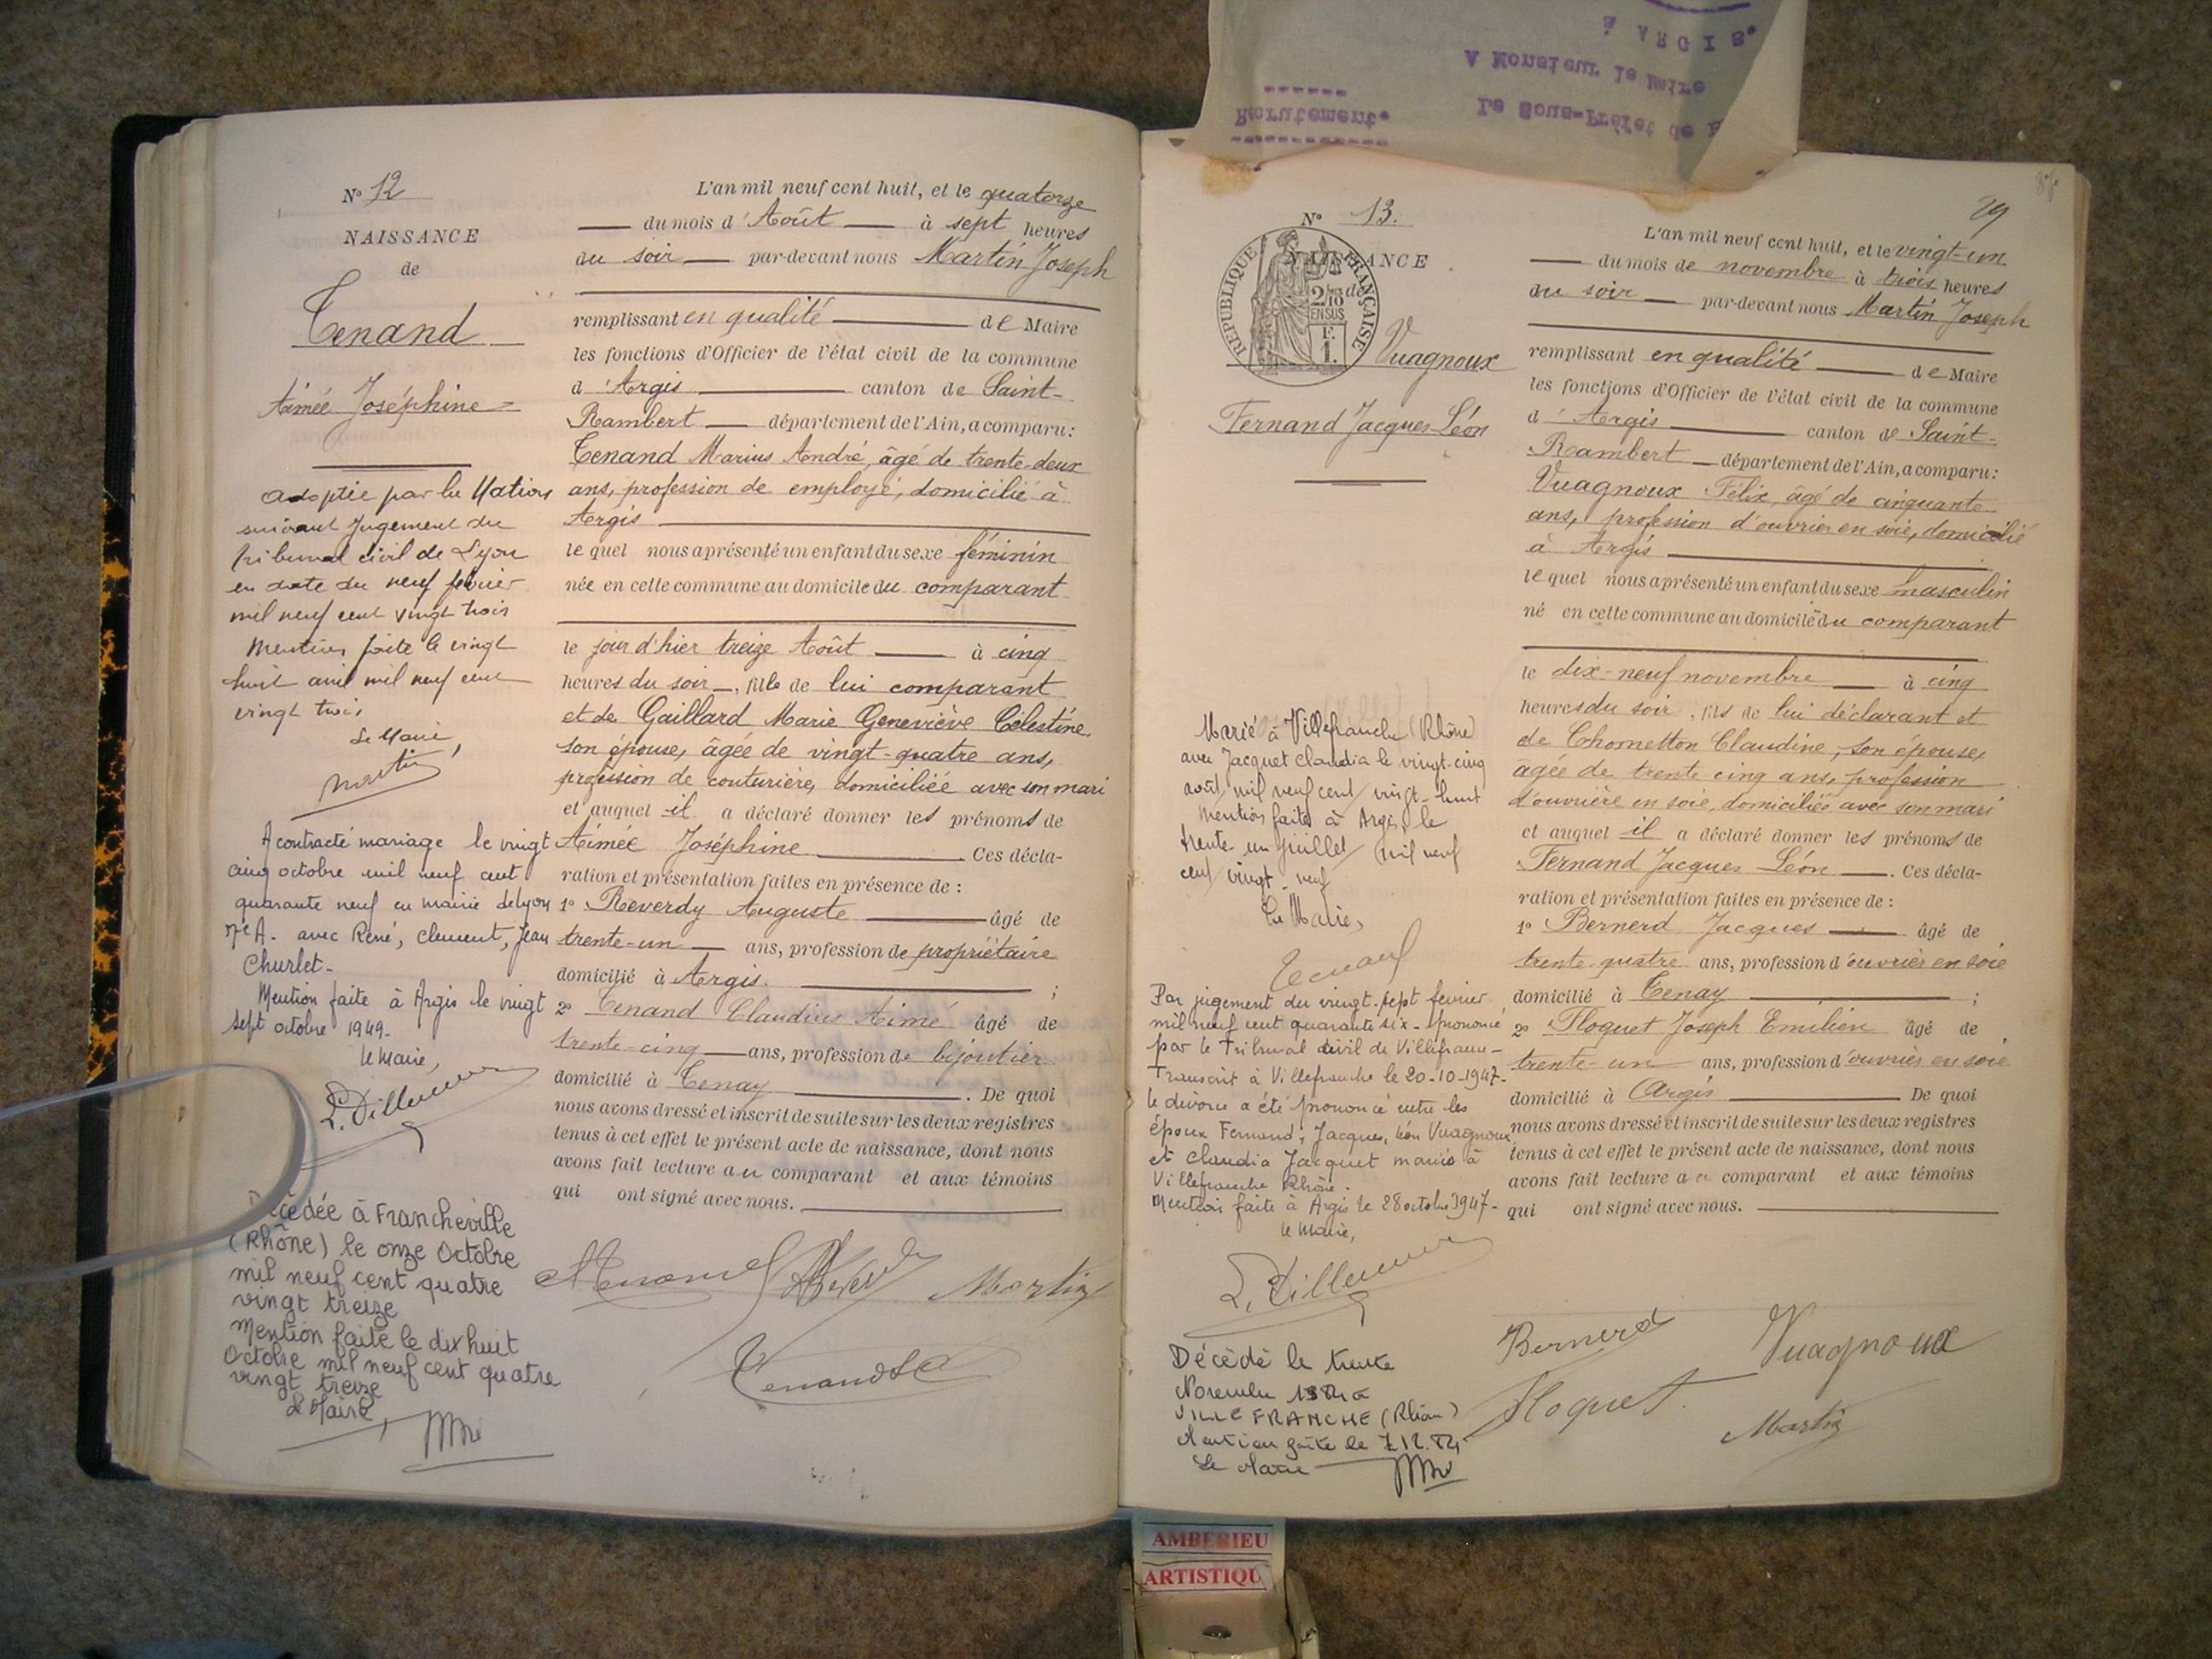 N° 12
NAISSANCE
de
Tenand
Aimée Joséphine
adoptée par la Nation
suivant Jugement du
tribunal civil de Lyon
en date du neuf février
mil neuf cent vingt trois
Mention faite le vingt
huit avril mil neuf cent
vingt trois
Le Maire,
Martin
A contracté mariage le vingt
cinq octobre mil neuf cent
quarante neuf en mairie de Lyon
7e A. avec René, Clement, Jean
Churlet-
Mention faite à Argis le vingt
sept octobre 1949-
le Maire,
Décédée à Francheville
(Rhône) le onze Octobre
mil neuf cent quatre
vingt treize
Mention faite le dix huit
Octobre mil neuf cent quatre
vingt treize
Le Maire,
L'an mil neuf cent huit, et le quatorze
du mois d'Août à sept heures
du soir par-devant nous Martin Joseph
remplissant en qualité de Maire
les fonctions d'Officier de l'état civil de la commune
d'Argis canton de Saint-
Rambert département de l'Ain, a comparu:
Tenand Marius André, âgé de trente-deux
ans, profession de employé, domicilié à
Argis
lequel nous a présenté un enfant du sexe féminin
née en cette commune au domicile du comparant
le jour d'hier treize Août à cinq
heures du soir, fille de lui comparant
et de Gaillard Marie Geneviève Célestine,
son épouse, âgée de vingt-quatre ans,
profession de couturière, domiciliée avec son mari
et auquel il a déclaré donner les prénoms de
Aimée Joséphine Ces décla-
ration et présentation faites en présence de :
1° Reverdy Auguste âgé de
trente-un ans, profession de propriétaire
domicilié à Argis ;
2° Tenand Claudius Aimé âgé de
trente-cinq ans, profession de bijoutier
domicilié à Tenay. De quoi
nous avons dressé et inscrit de suite sur les deux registres
tenus à cet effet le présent acte de naissance, dont nous
avons fait lecture au comparant et aux témoins
qui ont signé avec nous.
Martin
à ARGIS.
A Monsieur le Maire
Le Sous-Préfet de
Recrutement.
29
N° 13.
NAISSANCE
de
RÉPUBLIQUE FRANÇAISE
2/10
EN SUS
F.
1.
Vuagnoux
Fernand Jacques Léon
Marié à Villefranche (Rhône)
avec Jacquet Claudia le vingt-cinq
août mil neuf cent vingt-huit
Mention faite à Argis, le
trente-un juillet mil neuf
cent vingt-neuf
Le Maire,
Tenand
Par jugement du vingt-sept fevrier
mil neuf cent quarante six- prononcé
par le Tribunal civil de Villefranche-
Transcrit à Villefranche le 20-10-1947-
le divorce a été prononcé entre les
époux Fernand, Jacques, Léon Vuagnoux
et Claudia Jacquet mariés à
Villefranche Rhône.
Mention faite à Argis le 28 octobre 1947-
le Maire,
Décédé le trente
Novembre
VILLEFRANCHE (Rhône)
Mention faite le
Le Maire
L'an mil neuf cent huit, et le vingt-un
du mois de novembre à trois heures
du soir par-devant nous Martin Joseph
remplissant en qualité de Maire
les fonctions d'Officier de l'état civil de la commune
d'Argis canton de Saint-
Rambert département de l'Ain, a comparu:
Vuagnoux Félix, âgé de cinquante
ans, profession d'ouvrier en soie, domicilié
à Argis
lequel nous a présenté un enfant du sexe masculin
né en cette commune au domicile du comparant
le dix-neuf novembre à cinq
heures du soir, fils de lui déclarant et
de Chometton Claudine, son épouse,
âgée de trente cinq ans, profession
d'ouvrière en soie, domiciliée avec son mari
et auquel il a déclaré donner les prénoms de
Fernand Jacques Léon. Ces décla-
ration et présentation faites en présence de :
1° Bernerd Jacques âgé de
trente-quatre ans, profession d'ouvrier en soie
domicilié à Tenay ;
2° Floquet Joseph Emilien âgé de
trente-un ans, profession d'ouvrier en soie
domicilié à Argis De quoi
nous avons dressé et inscrit de suite sur les deux registres
tenus à cet effet le présent acte de naissance, dont nous
avons fait lecture au comparant et aux témoins
qui ont signé avec nous.
Bernerd Vuagnoux
Floquet Martin
AMBERIEU
ARTISTIQU